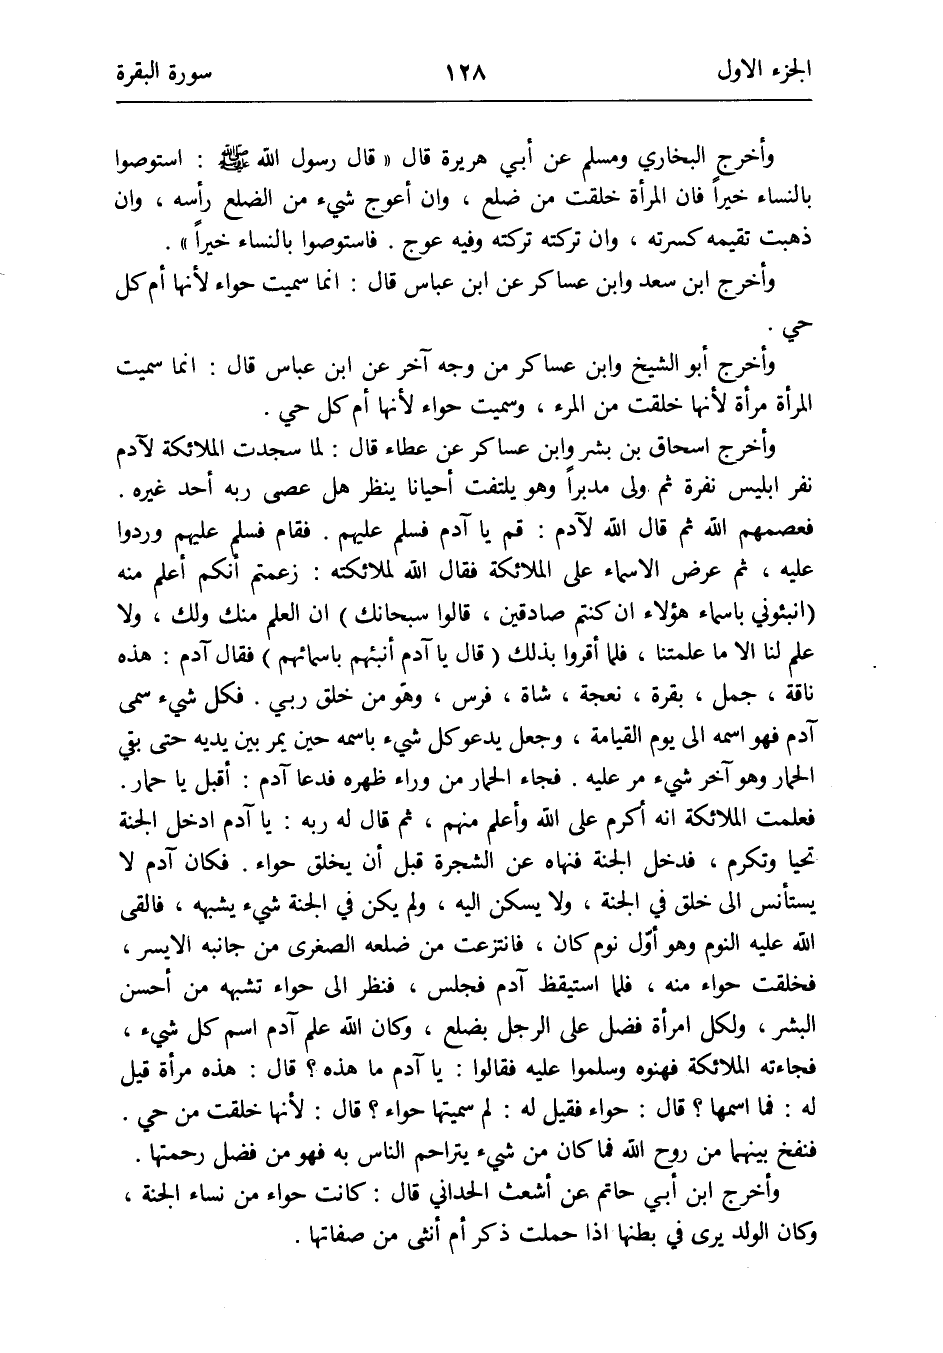 الجزء الاول ١٢٨ سورة البقرة
وأخرج البخاري ومسلم عن أبي هريرة قال « قال رسول الله ﷺ : استوصوا
بالنساء خيراً فان المرأة خلقت من ضلع ، وان أعوج شيء من الضلع رأسه ، وان
ذهبت تقيمه كسرته ، وان تركته تركته وفيه عوج . فاستوصوا بالنساء خيراً » .
وأخرج ابن سعد وابن عساكر عن ابن عباس قال : انما سميت حواء لأنها أم كل
حي .
وأخرج أبو الشيخ وابن عساكر من وجه آخر عن ابن عباس قال : انما سميت
المرأة مرأة لأنها خلقت من المرء ، وسميت حواء لأنها أم كل حي .
وأخرج اسحاق بن بشر وابن عساكر عن عطاء قال : لما سجدت الملائكة لآدم
نفر ابليس نفرة ثم ولى مدبراً وهو يلتفت أحيانا ينظر هل عصى ربه أحد غيره .
فعصمهم الله ثم قال الله لآدم : قم يا آدم فسلم عليهم . فقام فسلم عليهم وردوا
عليه ، ثم عرض الاسماء على الملائكة فقال الله لملائكته : زعمتم أنكم أعلم منه
(انبئوني باسماء هؤلاء ان كنتم صادقين ، قالوا سبحانك ) ان العلم منك ولك ، ولا
علم لنا الا ما علمتنا ، فلما أقروا بذلك ( قال يا آدم أنبئهم باسمائهم ) فقال آدم : هذه
ناقة ، جمل ، بقرة ، نعجة ، شاة ، فرس ، وهو من خلق ربي . فكل شيء سمى
آدم فهو اسمه الى يوم القيامة ، وجعل يدعو كل شيء باسمه حين يمر بين يديه حتى بقي
الحمار وهو آخر شيء مر عليه . فجاء الحمار من وراء ظهره فدعا آدم : أقبل يا حمار .
فعلمت الملائكة انه أكرم على الله وأعلم منهم ، ثم قال له ربه : يا آدم ادخل الجنة
تحيا وتكرم ، فدخل الجنة فنهاه عن الشجرة قبل أن يخلق حواء . فكان آدم لا
يستأنس الى خلق في الجنة ، ولا يسكن اليه ، ولم يكن في الجنة شيء يشبهه ، فالقى
الله عليه النوم وهو أوّل نوم كان ، فانتزعت من ضلعه الصغرى من جانبه الايسر ،
فخلقت حواء منه ، فلما استيقظ آدم فجلس ، فنظر الى حواء تشبهه من أحسن
البشر ، ولكل امرأة فضل على الرجل بضلع ، وكان الله علم آدم اسم كل شيء ،
فجاءته الملائكة فهنوه وسلموا عليه فقالوا : يا آدم ما هذه ؟ قال : هذه مرأة قيل
له : فما اسمها ؟ قال : حواء فقيل له : لم سميتها حواء ؟ قال : لأنها خلقت من حي .
فنفخ بينهما من روح الله فما كان من شيء يتراحم الناس به فهو من فضل رحمتها .
وأخرج ابن أبي حاتم عن أشعث الحداني قال : كانت حواء من نساء الجنة ،
وكان الولد يرى في بطنها اذا حملت ذكر أم أنثى من صفاتها .